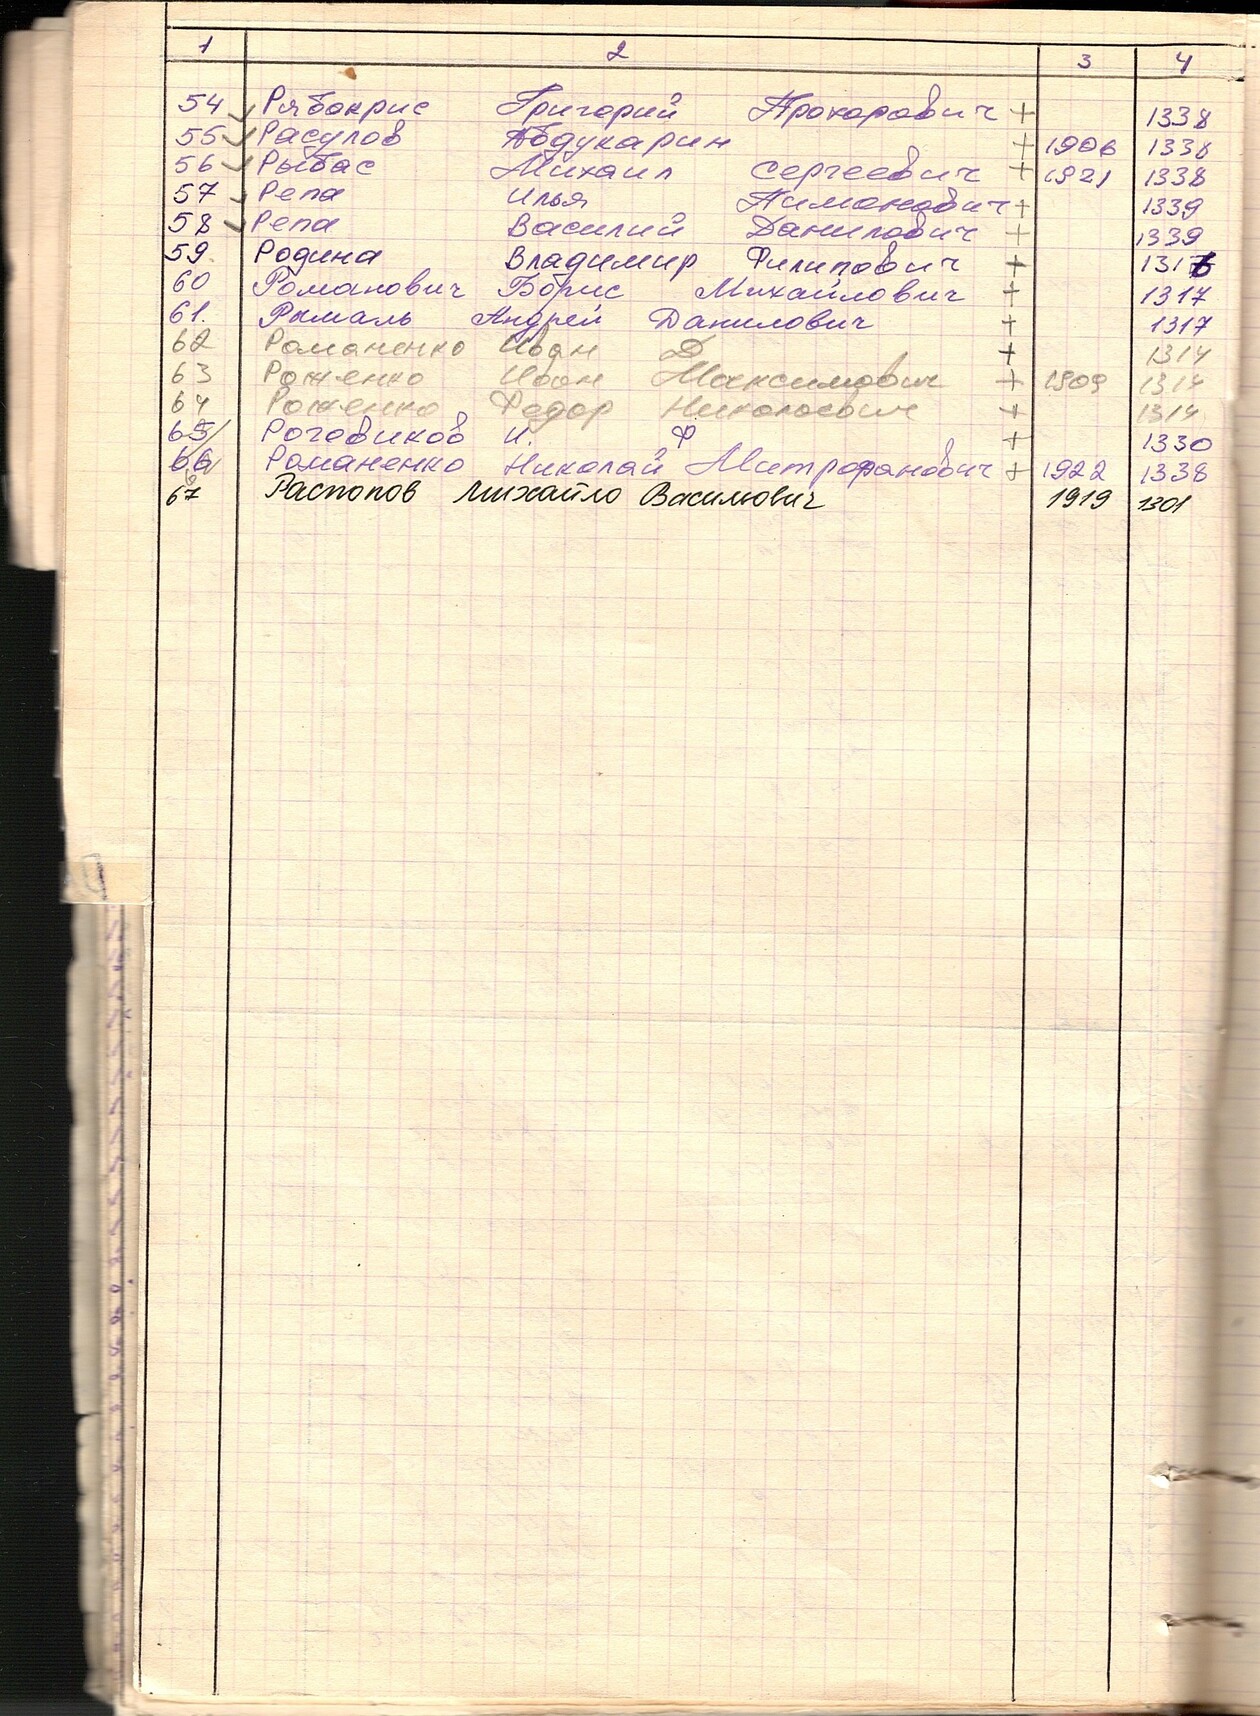 1 2 3 4
54 Рябокрис Григорий Прохорович + 1338
55 Расулов Абдукарин + 1906 1338
56 Рыбас Михаил Сергеевич + 1921 1338
57 Репа Илья Пимонович + 1339
58 Репа Василий Данилович + 1339
59. Родина Владимир Филипович + 1316
60 Романович Борис Михайлович + 1317
61. Рымаль Андрей Данилович + 1317
62 Романенко Иван Д + 1314
63 Роженко Иван Максимович + 1909 1314
64 Роженко Федор Николаевич + 1314
65 Роговиков И. Ф + 1330
66 Романенко Николай Митрофанович + 1922 1338
67 Распопов Михайло Васильович 1919 1301